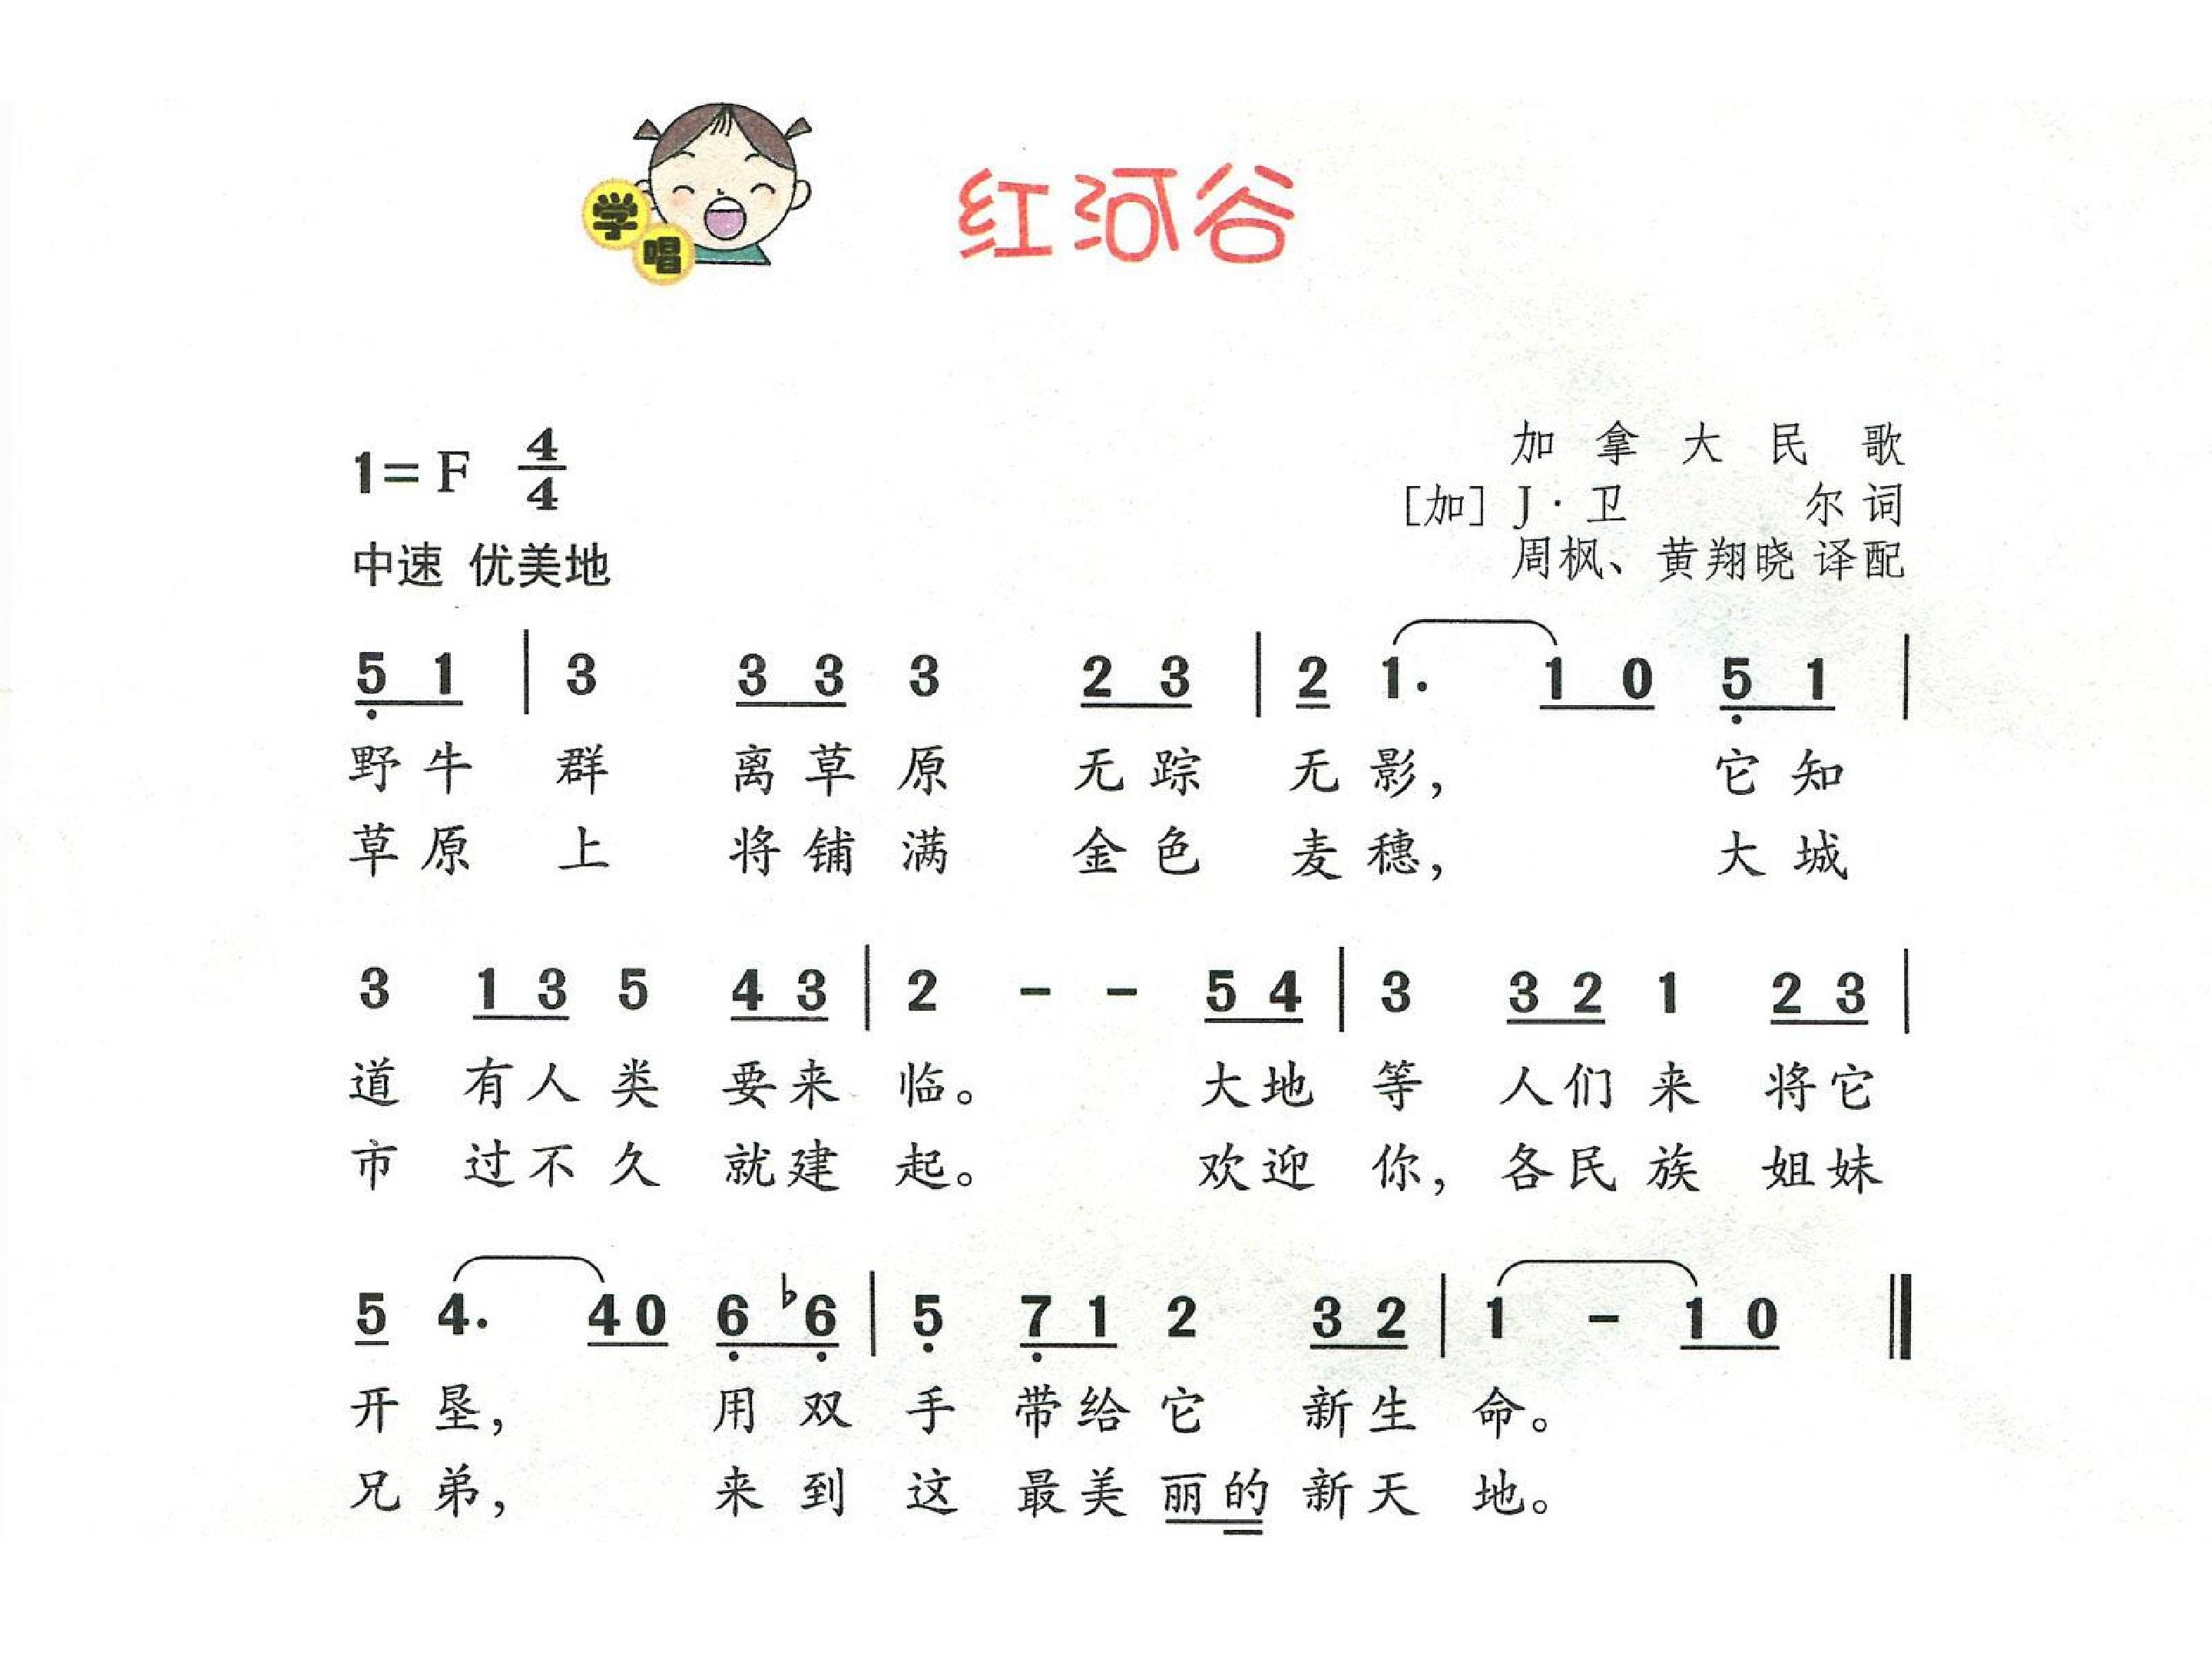 学唱
红河谷
加拿大民歌
1=F 4/4
[加] J·卫尔词
中速 优美地
周枫、黄翔晓 译配
5 1 | 3 3 3 3 2 3 | 2 1· 1 0 5 1 |
野牛 群 离草原 无踪 无影, 它知
草原 上 将铺满 金色 麦穗, 大城
3 1 3 5 4 3 | 2 - - 5 4 | 3 3 2 1 2 3 |
道 有人类 要来 临。 大地 等 人们来 将它
市 过不久 就建 起。 欢迎 你, 各民族 姐妹
5 4· 4 0 6 ♭6 | 5 7 1 2 3 2 | 1 - 1 0 ‖
开垦, 用双 手 带给它 新生 命。
兄弟, 来到 这 最美丽的 新天 地。